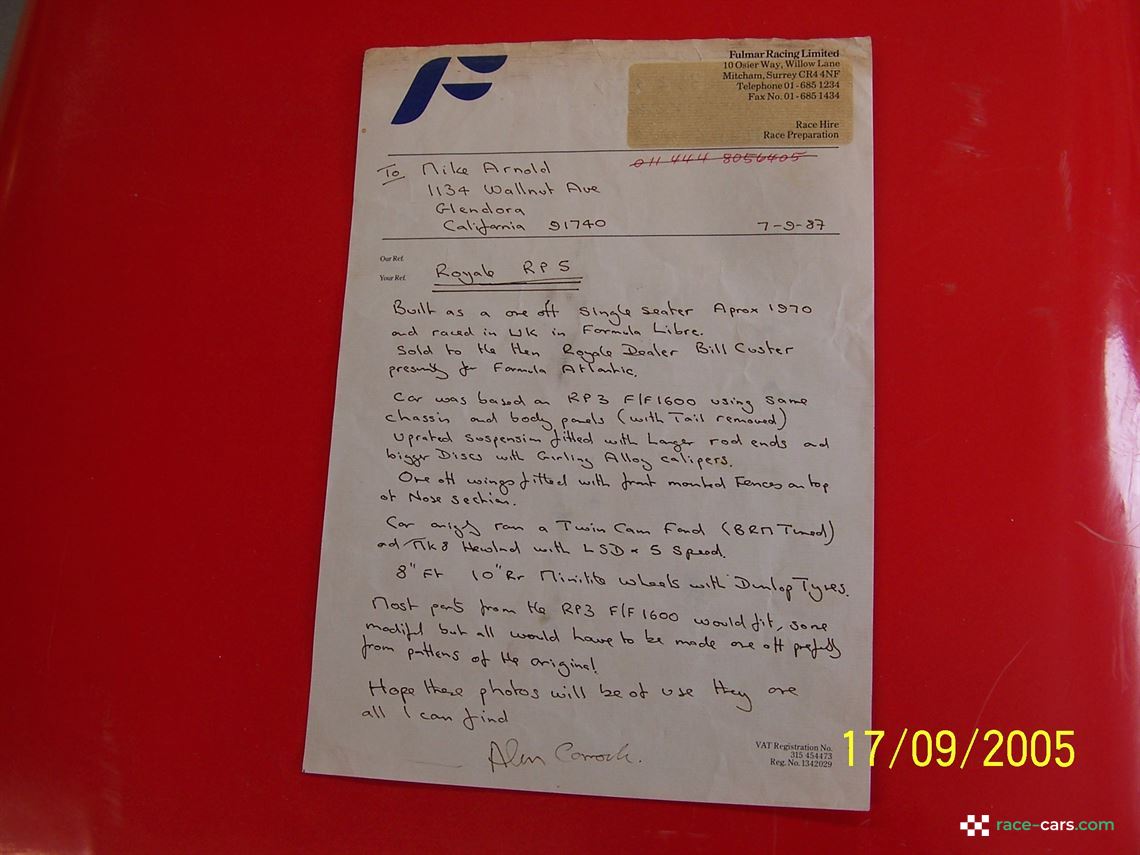 F
Fulmar Racing Limited
10 Osier Way, Willow Lane
Mitcham, Surrey CR4 4NF
Telephone 01-685 1234
Fax No. 01-685 1434
Race Hire
Race Preparation
011 444 8056405
To Mike Arnold
1134 Wallnut Ave
Glendora
California 91740
7-9-87
Our Ref.
Your Ref.
Royale RP5
Built as a one off single seater Aprox 1970
and raced in UK in Formula Libre.
Sold to the then Royale Dealer Bill Custer
for Formula Atlantic.
Car was based on RP3 F/F1600 using same
chassis and body panels (with Tail removed)
uprated suspension fitted with Larger rod ends and
bigger Discs with Girling Alloy calipers.
One off wings fitted with front mounted Fences on top
of Nose section.
Car ran a Twin Cam Ford (BRM Tuned)
ad Mk8 Hewland with LSD 5 Speed.
8" Ft 10" Rr Minilite wheels with Dunlop Tyres.
Most parts from the RP3 F/F1600 would fit, some
but all would have to be made one off
from pattens of the original
Hope these photos will be of use they are
all I can find
Alan
VAT Registration No.
315 454473
Reg. No. 1342029
17/09/2005
race-cars.com